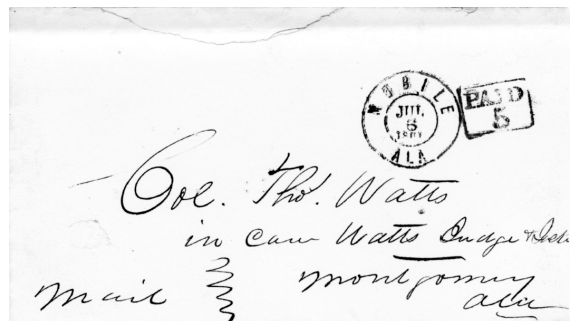 MOBILE
JUL
6
1861
ALA
PAID
5
Col. Tho.s Watts
in care Watts Judge &
Mail
Montgomery
Ala